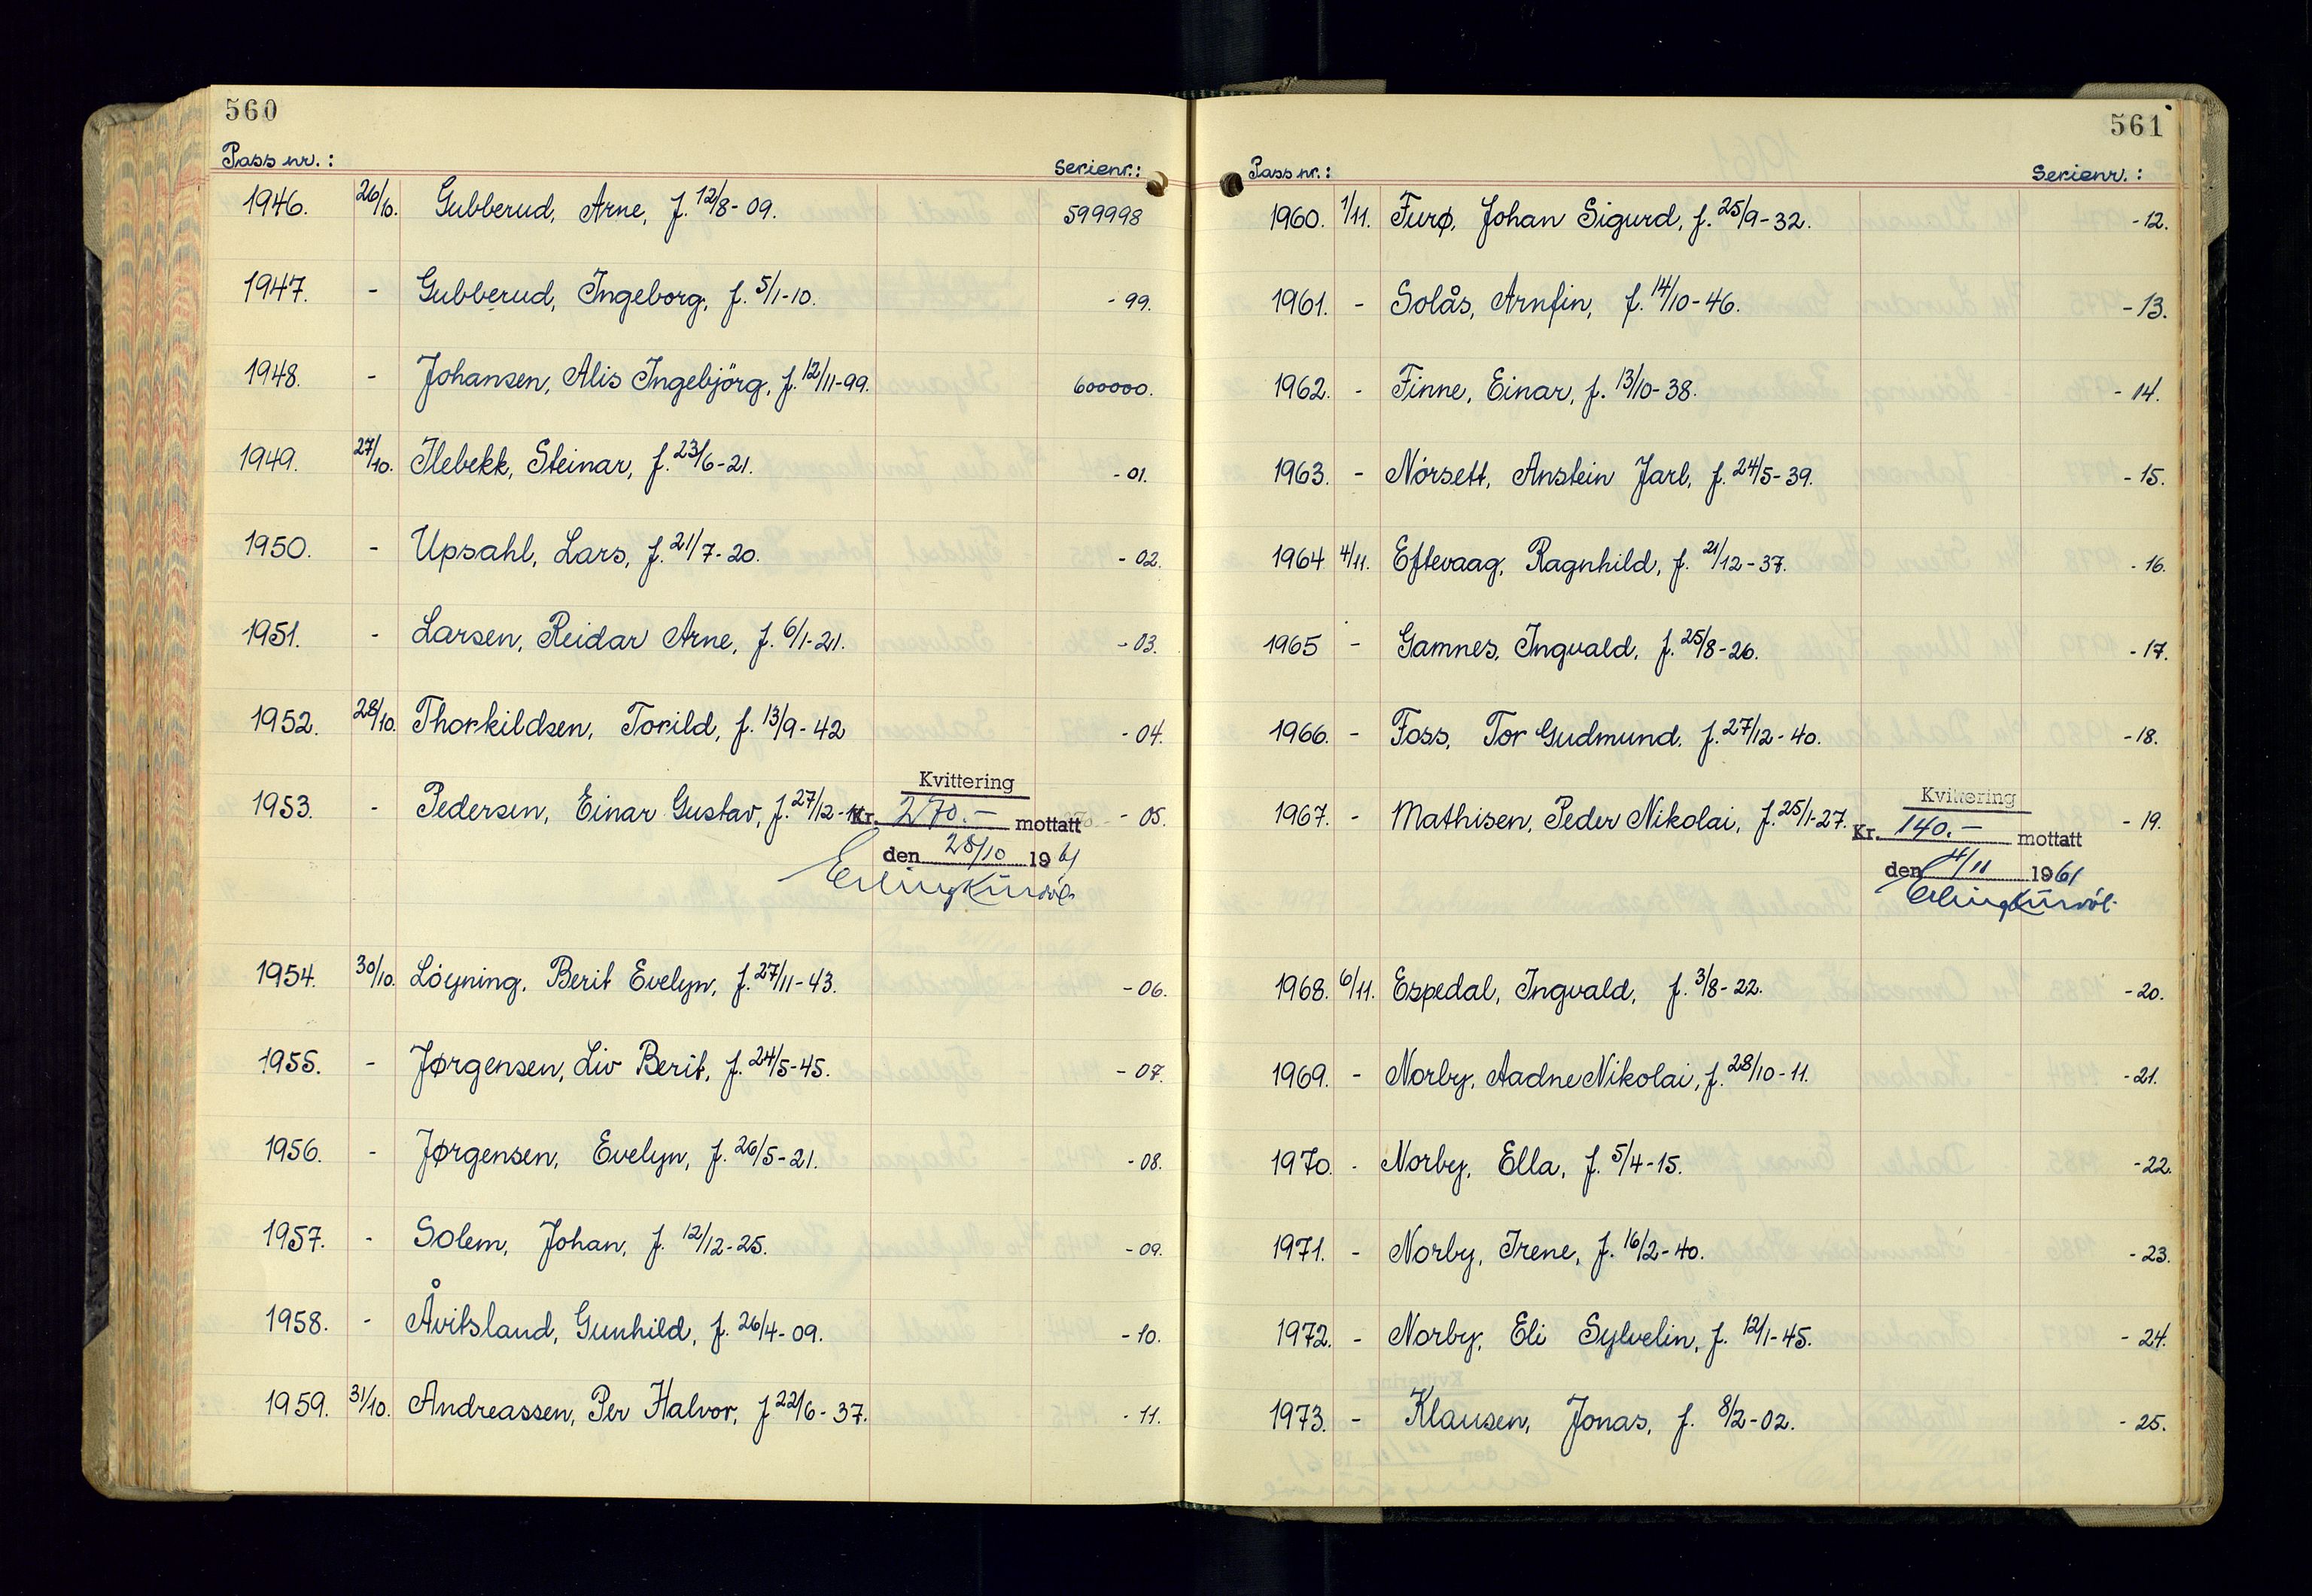 560
Pass nr.: Serienr.:
1946. 26/10. Gubberud, Arne, f. 12/8-09. 599998
1947. - Gubberud, Ingeborg, f. 5/1-10. -99.
1948. - Johansen, Alis Ingebjörg, f. 12/11-99. 600000.
1949. 27/10. Ilebekk, Steinar, f. 23/6-21. -01.
1950. - Upsahl, Lars, f. 21/7-20. -02.
1951. - Larsen, Reidar Arne, f. 6/1-21. -03.
1952. 28/10. Thorkildsen, Torild, f. 13/9-42 -04.
1953. - Pedersen, Einar Gustav, f. 27/12- -05.
Kvittering
Kr. 270.- mottatt
den 28/10 1961
1954. 30/10. Löyning, Berit Evelyn, f. 27/11-43. -06.
1955. - Jørgensen, Liv Berit, f. 24/5-45. -07.
1956. - Jørgensen, Evelyn, f. 26/5-21. -08.
1957. - Solem, Johan, f. 12/12-25. -09.
1958. - Åvitsland, Gunhild, f. 26/4-09. -10.
1959. 31/10. Andreassen, Per Halvor, f 22/6-37. -11.
561
Pass nr.: Serienr.:
1960. 1/11. Furø, Johan Sigurd, f. 25/9-32. -12.
1961. - Solås, Arnfin, f. 14/10-46. -13.
1962. - Finne, Einar, f. 13/10-38. -14.
1963. - Nórsett, Anstein Jarl, f. 24/5-39. -15.
1964 4/11. Eftevaag, Ragnhild, f. 21/12-37. -16.
1965 - Gamnes, Ingvald, f. 25/8-26. -17.
1966. - Foss, Tor Gudmund, f. 27/12-40. -18.
1967. - Mathisen, Peder Nikolai, f. 25/1-27. -19.
Kvittering
Kr. 140.- mottatt
den 4/11 1961
1968. 6/11. Espedal, Ingvald, f. 3/8-22. -20.
1969. - Norby, Aadne Nikolai, f. 28/10-11. -21.
1970. - Norby, Ella, f. 5/4-15. -22.
1971. - Norby, Irene, f. 16/2-40. -23.
1972. - Norby, Eli Sylvelin, f. 12/1-45. -24.
1973. - Klausen, Jonas, f. 8/2-02. -25.